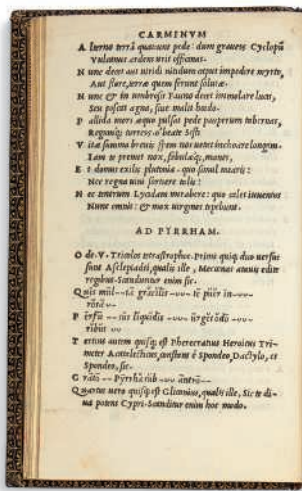 CARMINVM
A lterno terrā quatiunt pede: dum graueis Cyclopū
Vulcanus ardens urit officinas.
N unc decet aut uiridi nitidum caput impedire myrto,
Aut flore, terræ quem ferunt solutæ.
N unc & in umbrosis Fauno decet immolare lucis,
Seu poscat agna, siue malit hœdo.
P allida mors æquo pulsat pede pauperum tabernas,
Regumq; turreis ô beate Sesti
V itæ summa breuis spem nos uetat inchoare longam.
Iam te premet nox, fabulæq; manes,
E t domus exilis plutonia. quo simul mearis:
Nec regna uini sortiere talis:
N ec tenerum Lycidam mirabere: quo calet iuuentus
Nunc omnis: & mox uirgines tepebunt.
AD PYRRHAM.
O de. V. Tricolos tetrastrophos. Primi quiq; duo uersus
sunt Asclepiadei, qualis ille, Mecœnas atauis edite
regibus. Scanduntur enim sic.
Quis mul--tā gracilis -υυ- te puer in-υυ-
rosa υ-
P erfu -- sus liquidis -υυ- urget odo -υυ-
ribus υυ
T ertius autem quisq; est Pherecratius Heroicus Tri-
meter Acatalecticus, constans è Spondeo, Dactylo, et
Spondeo, sic.
G rato -- Pyrrha sub -υυ antro--
Quartus uero quisq; est Glyconius, qualis ille, Sic te di-
ua potens Cypri. Scanditur enim hoc modo.